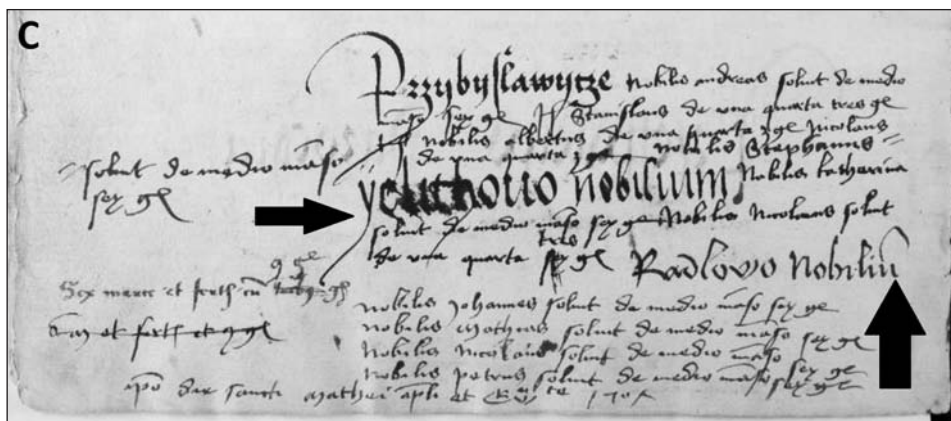 C
Przybyslawycze nobilis andreas soluit de medio
manso sex gr Stanislaus de vna quarta tres gr
nobilis albertus de vna quarta 3 gr Nicolaus
de vna quarta 3 gr nobilis Stephanus
soluit de medio manso
sex gr
nobilium nobilis katherina
soluit de medio manso sex gr Nobilis Nicolaus soluit
de vna quarta tres gr Radlowo Nobiliu
Sex marce et ferth cu gr
nobilis Johannes soluit de medio manso sex gr
nobilis Mathias soluit de medio manso sex gr
Nobilis Nicolaus soluit de medio manso sex gr
Nobilis petrus soluit de medio manso sex gr
ipso die sancti Mathei apli et